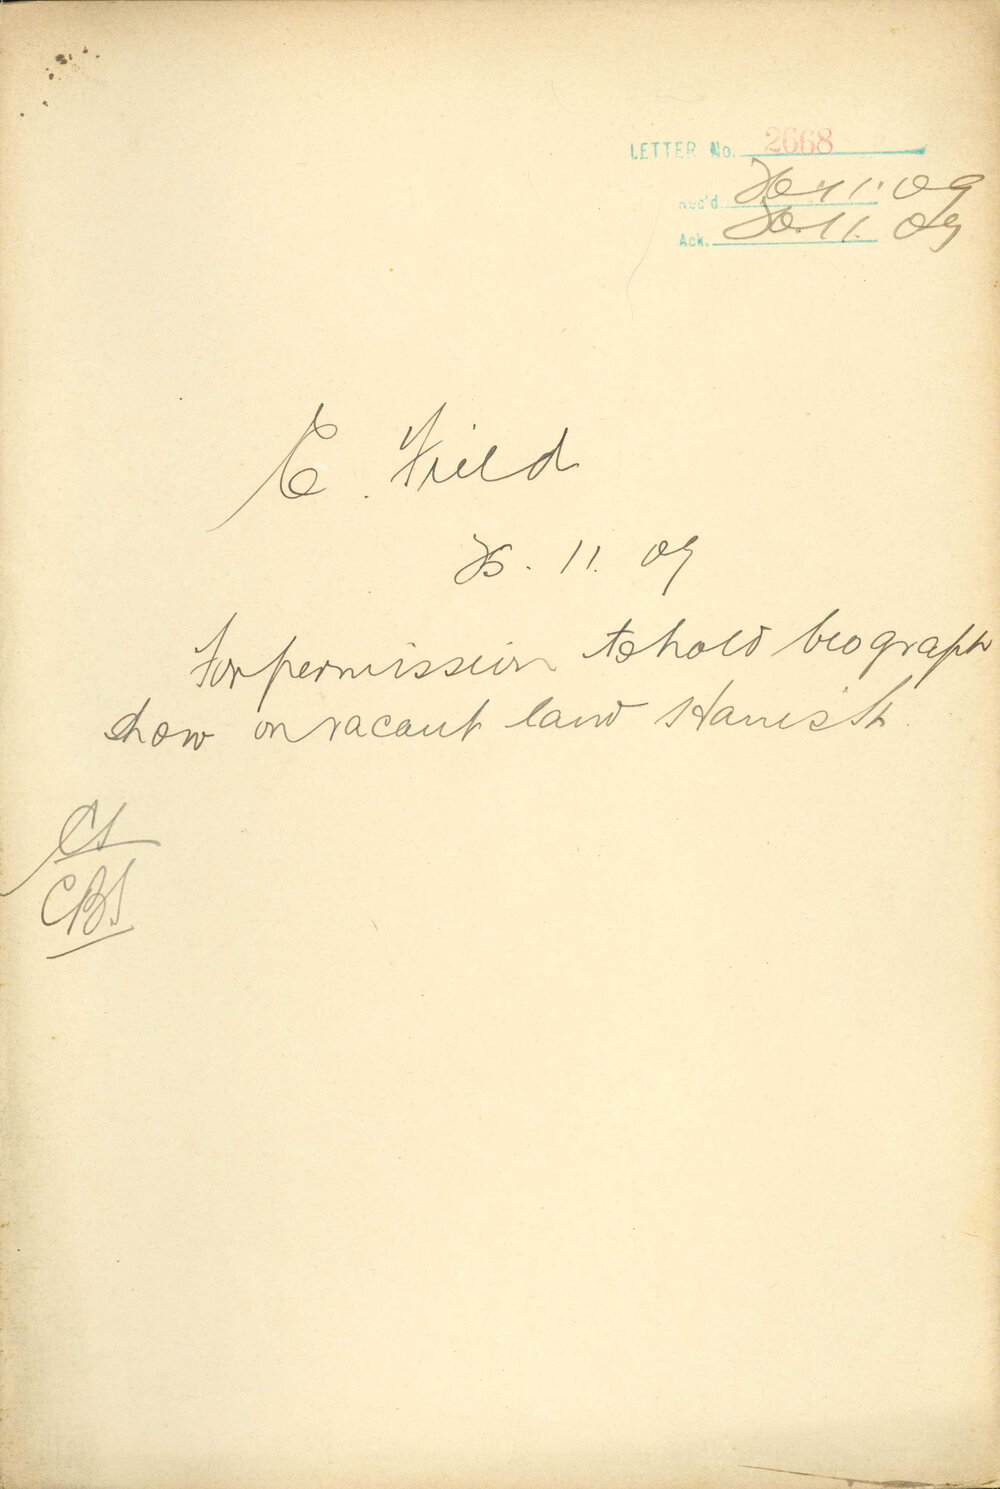 LETTER No. 2668
Rec'd 11. 09
Ack. 11. 09
E. Field
11. 09
For permission to hold biograph
show on vacant land Harris St
CS
CBS